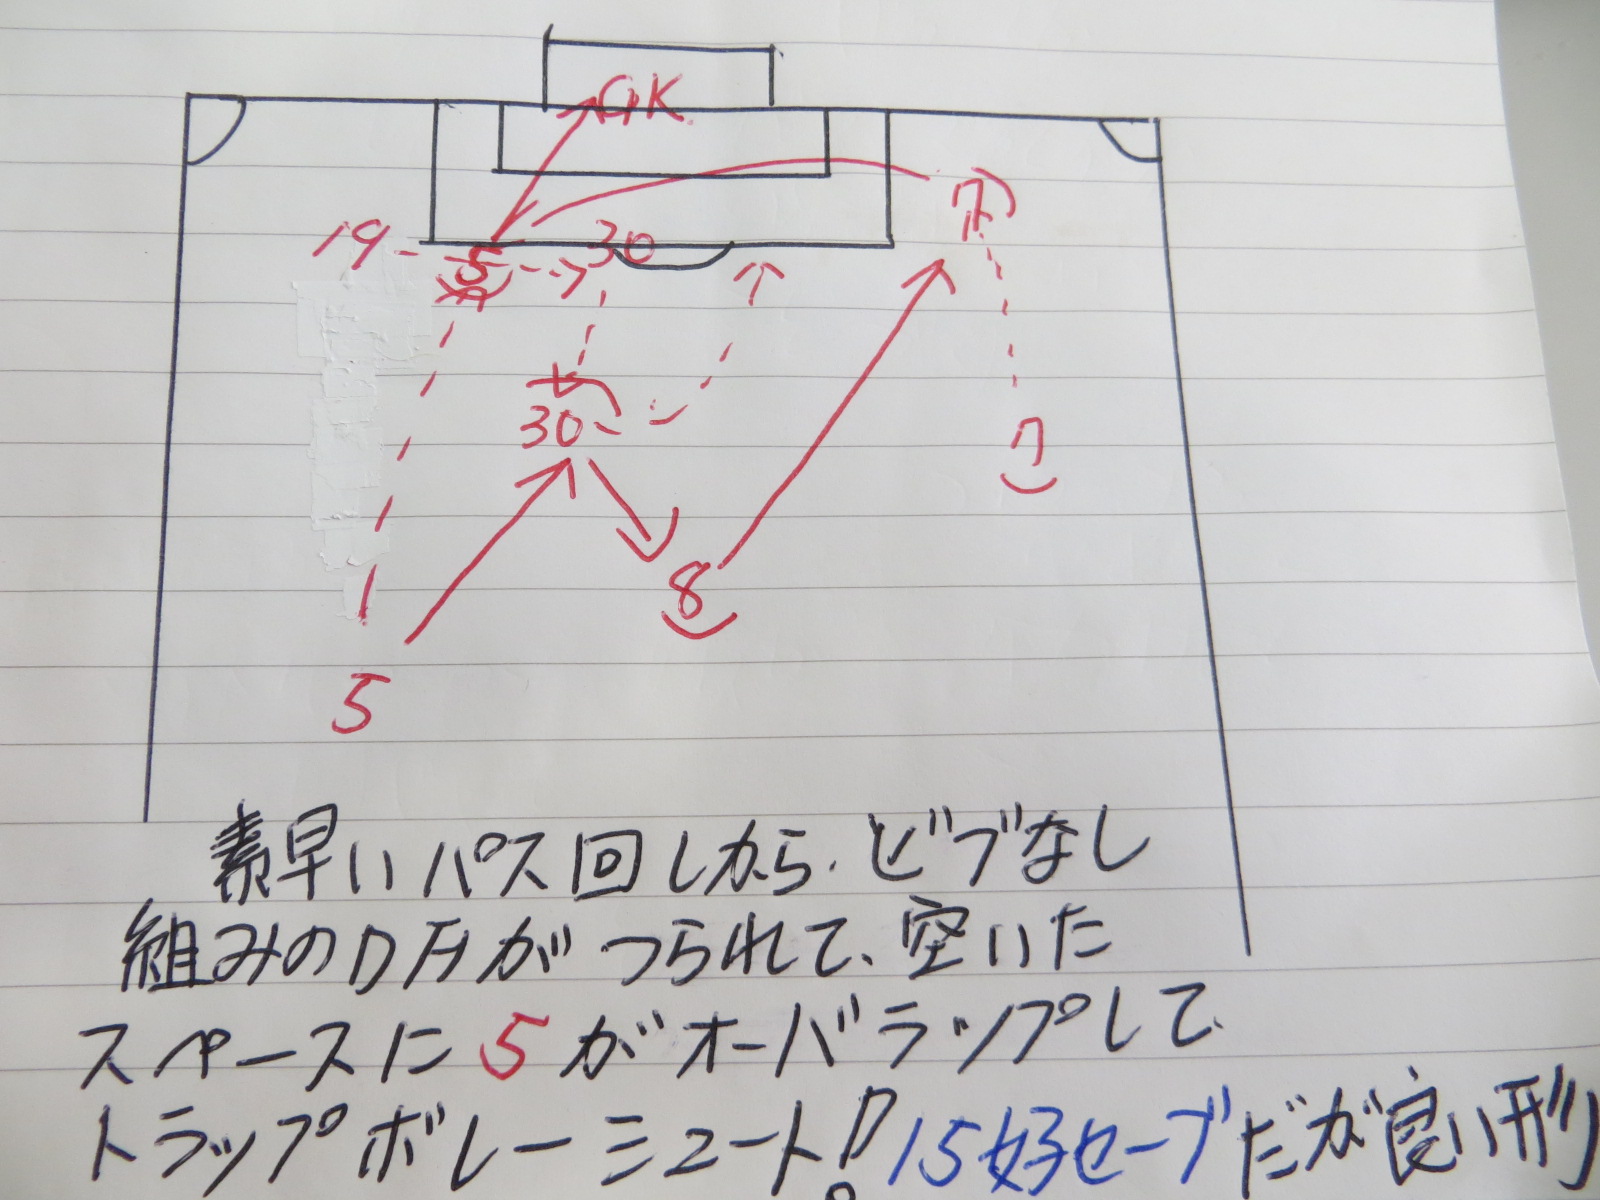 GK
7
19 5 30
30
7
8
5
素早いパス回しから、ビブなし
組みのDFがつられて、空いた
スペースに5がオーバーラップして
トラップボレーシュート!15好セーブだが良い形